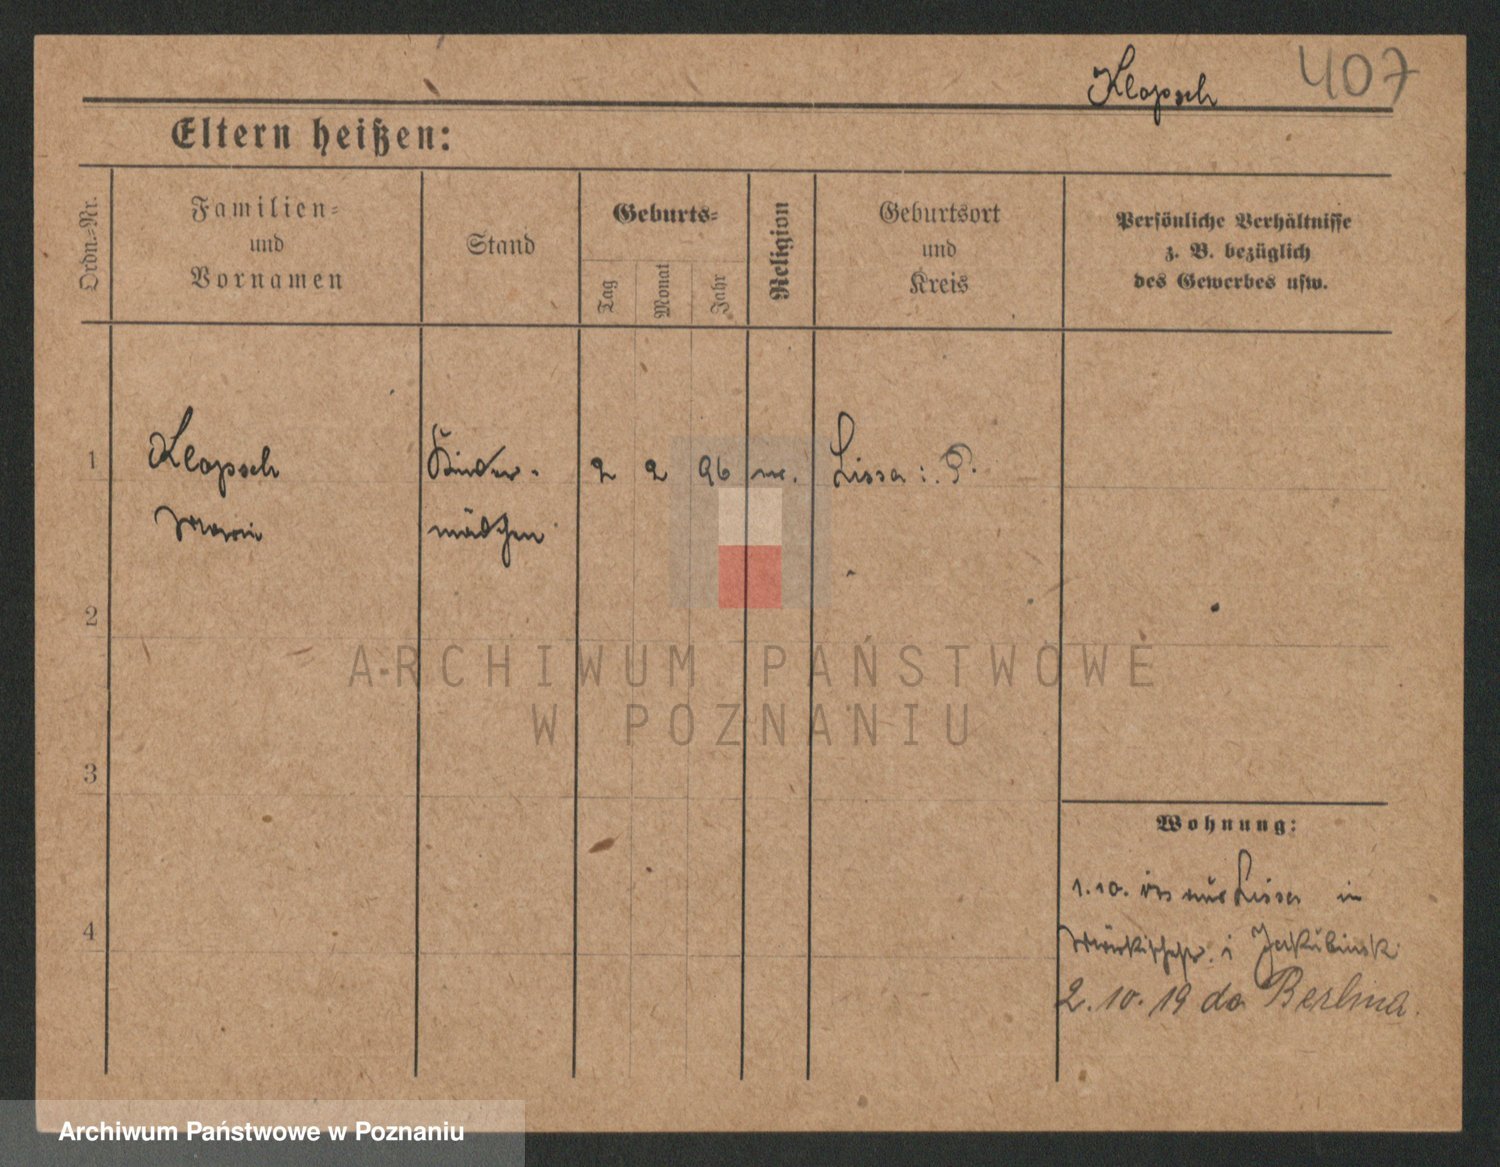 Klopsch 407
Eltern heißen:
Ordn.-Nr.
Familien-
und
Vornamen
Stand
Geburts-
Tag
Monat
Jahr
Religion
Geburtsort
und
Kreis
Persönliche Verhältnisse
z. B. bezüglich
des Gewerbes usw.
1 Klopsch Kinder- 2 2 96 Lissa i. P.
Marie mädchen
2
3
4
Wohnung:
1.10. aus Lissa in
Jakubinsk
2.10.19 do Berlina.
ARCHIWUM PAŃSTWOWE
W POZNANIU
Archiwum Państwowe w Poznaniu